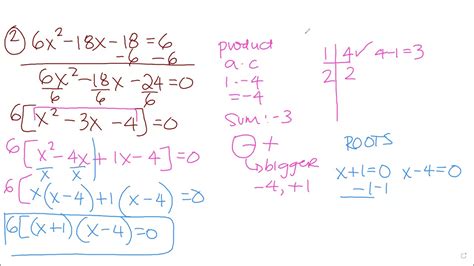 ② 6x²-18x-18=6
-6 -6
6x²-18x-24=0
6 6 6
6[x²-3x-4]=0
6[x²-4x+1x-4]=0
x x
6[x(x-4)+1(x-4)=0
6[(x+1)(x-4)=0
product
a.c
1.-4
=-4
sum:-3
- +
bigger
-4,+1
1 4 ✓ 4-1=3
2 2
ROOTS
x+1=0 x-4=0
-1 -1